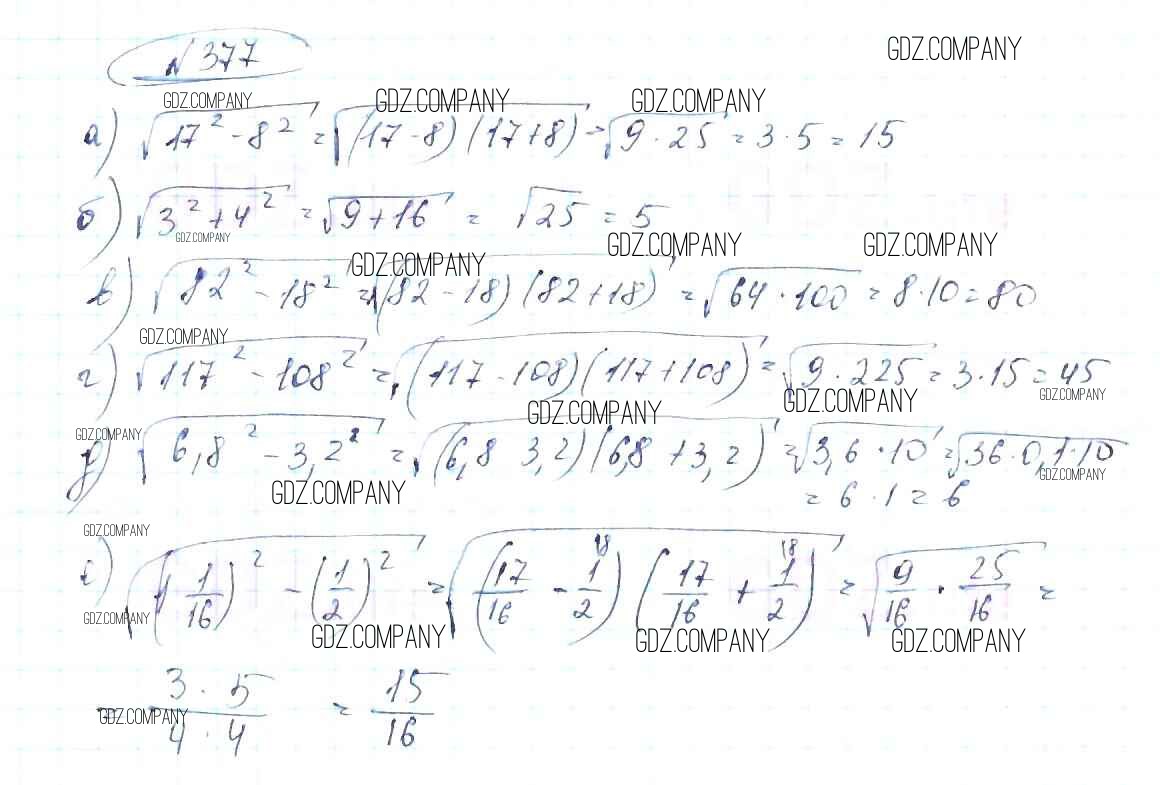 № 377
GDZ.COMPANY
GDZ.COMPANY GDZ.COMPANY GDZ.COMPANY
а) √(17² - 8²) = √((17-8)(17+8)) = √(9·25) = 3·5 = 15
б) √(3² + 4²) = √(9+16) = √25 = 5
GDZ.COMPANY GDZ.COMPANY GDZ.COMPANY
GDZ.COMPANY
в) √(82² - 18²) = √((82-18)(82+18)) = √(64·100) = 8·10 = 80
GDZ.COMPANY
г) √(117² - 108²) = √((117-108)(117+108)) = √(9·225) = 3·15 = 45
GDZ.COMPANY GDZ.COMPANY GDZ.COMPANY
GDZ.COMPANY
д) √(6,8² - 3,2²) = √((6,8 3,2)(6,8+3,2)) = √(3,6·10) = √(36·0,1·10)
GDZ.COMPANY
= 6·1 = 6
GDZ.COMPANY
GDZ.COMPANY
е) √((1 1/16)² - (1/2)²) = √((17/16 - 1/2\8)(17/16 + 1/2\8)) = √(9/16 · 25/16) =
GDZ.COMPANY GDZ.COMPANY GDZ.COMPANY GDZ.COMPANY
= (3·5)/(4·4) = 15/16
GDZ.COMPANY